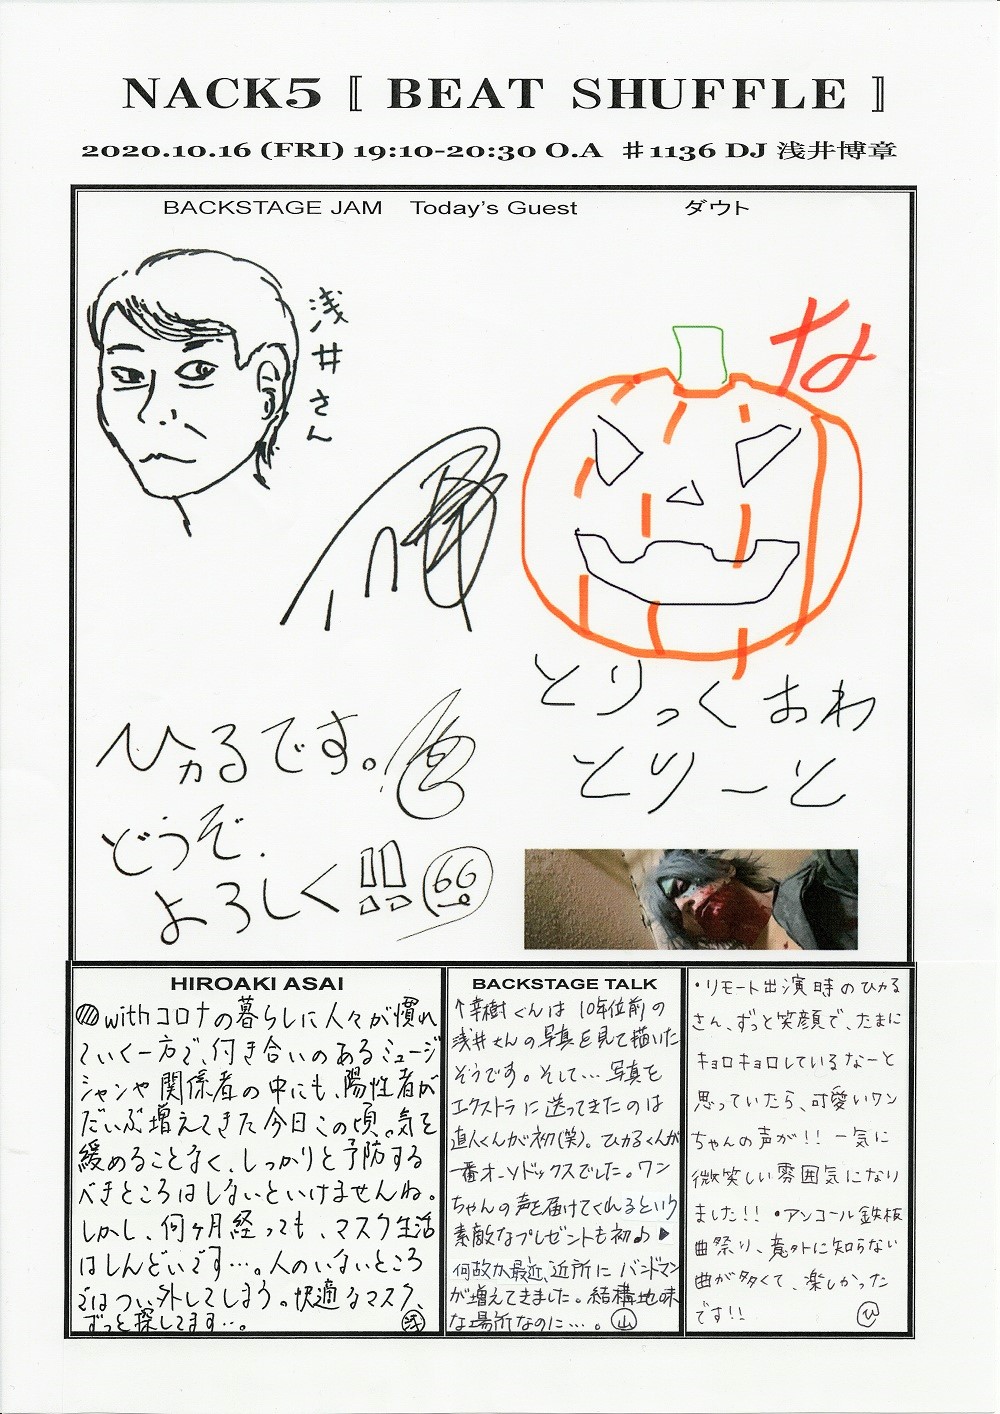 NACK5 〚 BEAT SHUFFLE 〛
2020.10.16 (FRI) 19:10-20:30 O.A ♯1136 DJ 浅井博章
BACKSTAGE JAM Today's Guest ダウト
浅井さん
な
とりっくおわ
とりーと
ひヵるです。
どうぞ
よろしく!!
HIROAKI ASAI
withコロナの暮らしに人々が慣れ
ていく一方で、付き合いのあるミュージ
シャンや関係者の中にも、陽性者が
だいぶ増えてきた今日この頃。気を
緩めることなく、しっかりと予防する
べきところはしないといけませんね。
しかし、何ヶ月経っても、マスク生活
はしんどいです…。人のいないところ
ではつい外してしまう。快適なマスク、
ずっと探してます…。 浅
BACKSTAGE TALK
↑幸樹くんは10年位前の
浅井さんの写真を見て描いた
そうです。そして…写真を
エクストラに送ってきたのは
直人くんが初(笑)。ひヵるくんが
一番オーソドックスでした。ワン
ちゃんの声を届けてくれるという
素敵なプレゼントも初♪
何故か最近、近所にバンドマン
が増えてきました。結構地味
な場所なのに…。 山
・リモート出演時のひヵる
さん、ずっと笑顔で、たまに
キョロキョロしているなーと
思っていたら、可愛いワン
ちゃんの声が!! 一気に
微笑しい雰囲気になり
ました!! ・アンコール鉄板
曲祭り、意外に知らない
曲が多くて、楽しかった
です!! ひ